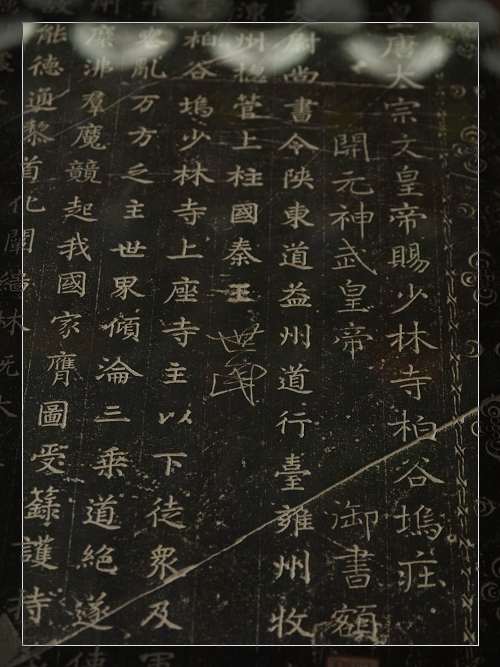 皇唐太宗文皇帝賜少林寺柏谷塢莊
開元神武皇帝 御書額
太尉尚書令陜東道益州道行臺雍州牧
涼州總管上柱國秦王世民
柏谷塢少林寺上座寺主以下徒眾及
下危亂万方乏主世界傾淪三乘道絕遂
糜沸群魔競起我國家膺圖受籙護持
能德通黎首化闡緇林